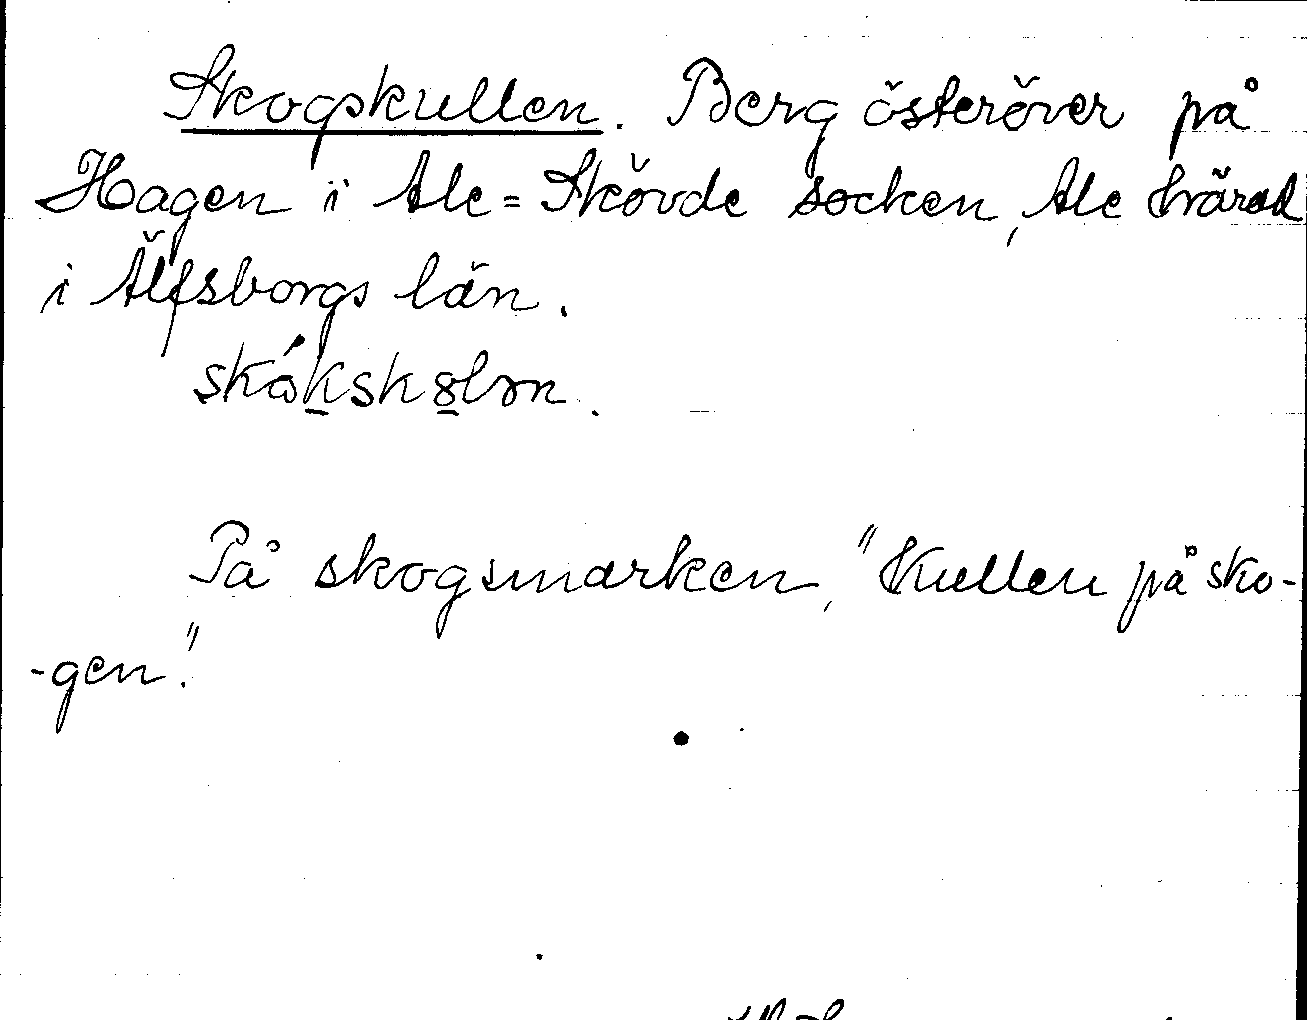 Skogskullen. Berg österöver på
Hagen i Ale=Skövde socken, Ale härad
i Älfsborgs län.
skókskꝏlən.
På skogsmarken, "Kullen på sko-
-gen".